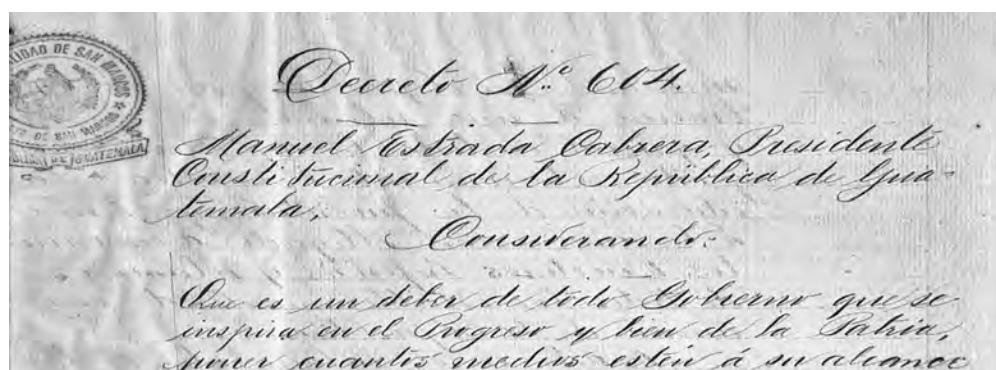 IDAD DE SAN MARCOS
DE SAN MARCOS
DE GUATEMALA
Decreto N.º 604.
Manuel Estrada Cabrera, Presidente
Constitucional de la República de Gua-
temala,
Considerando:
Que es un deber de todo Gobierno que se
inspira en el Progreso y bien de la Patria,
poner cuantos medios estén á su alcance